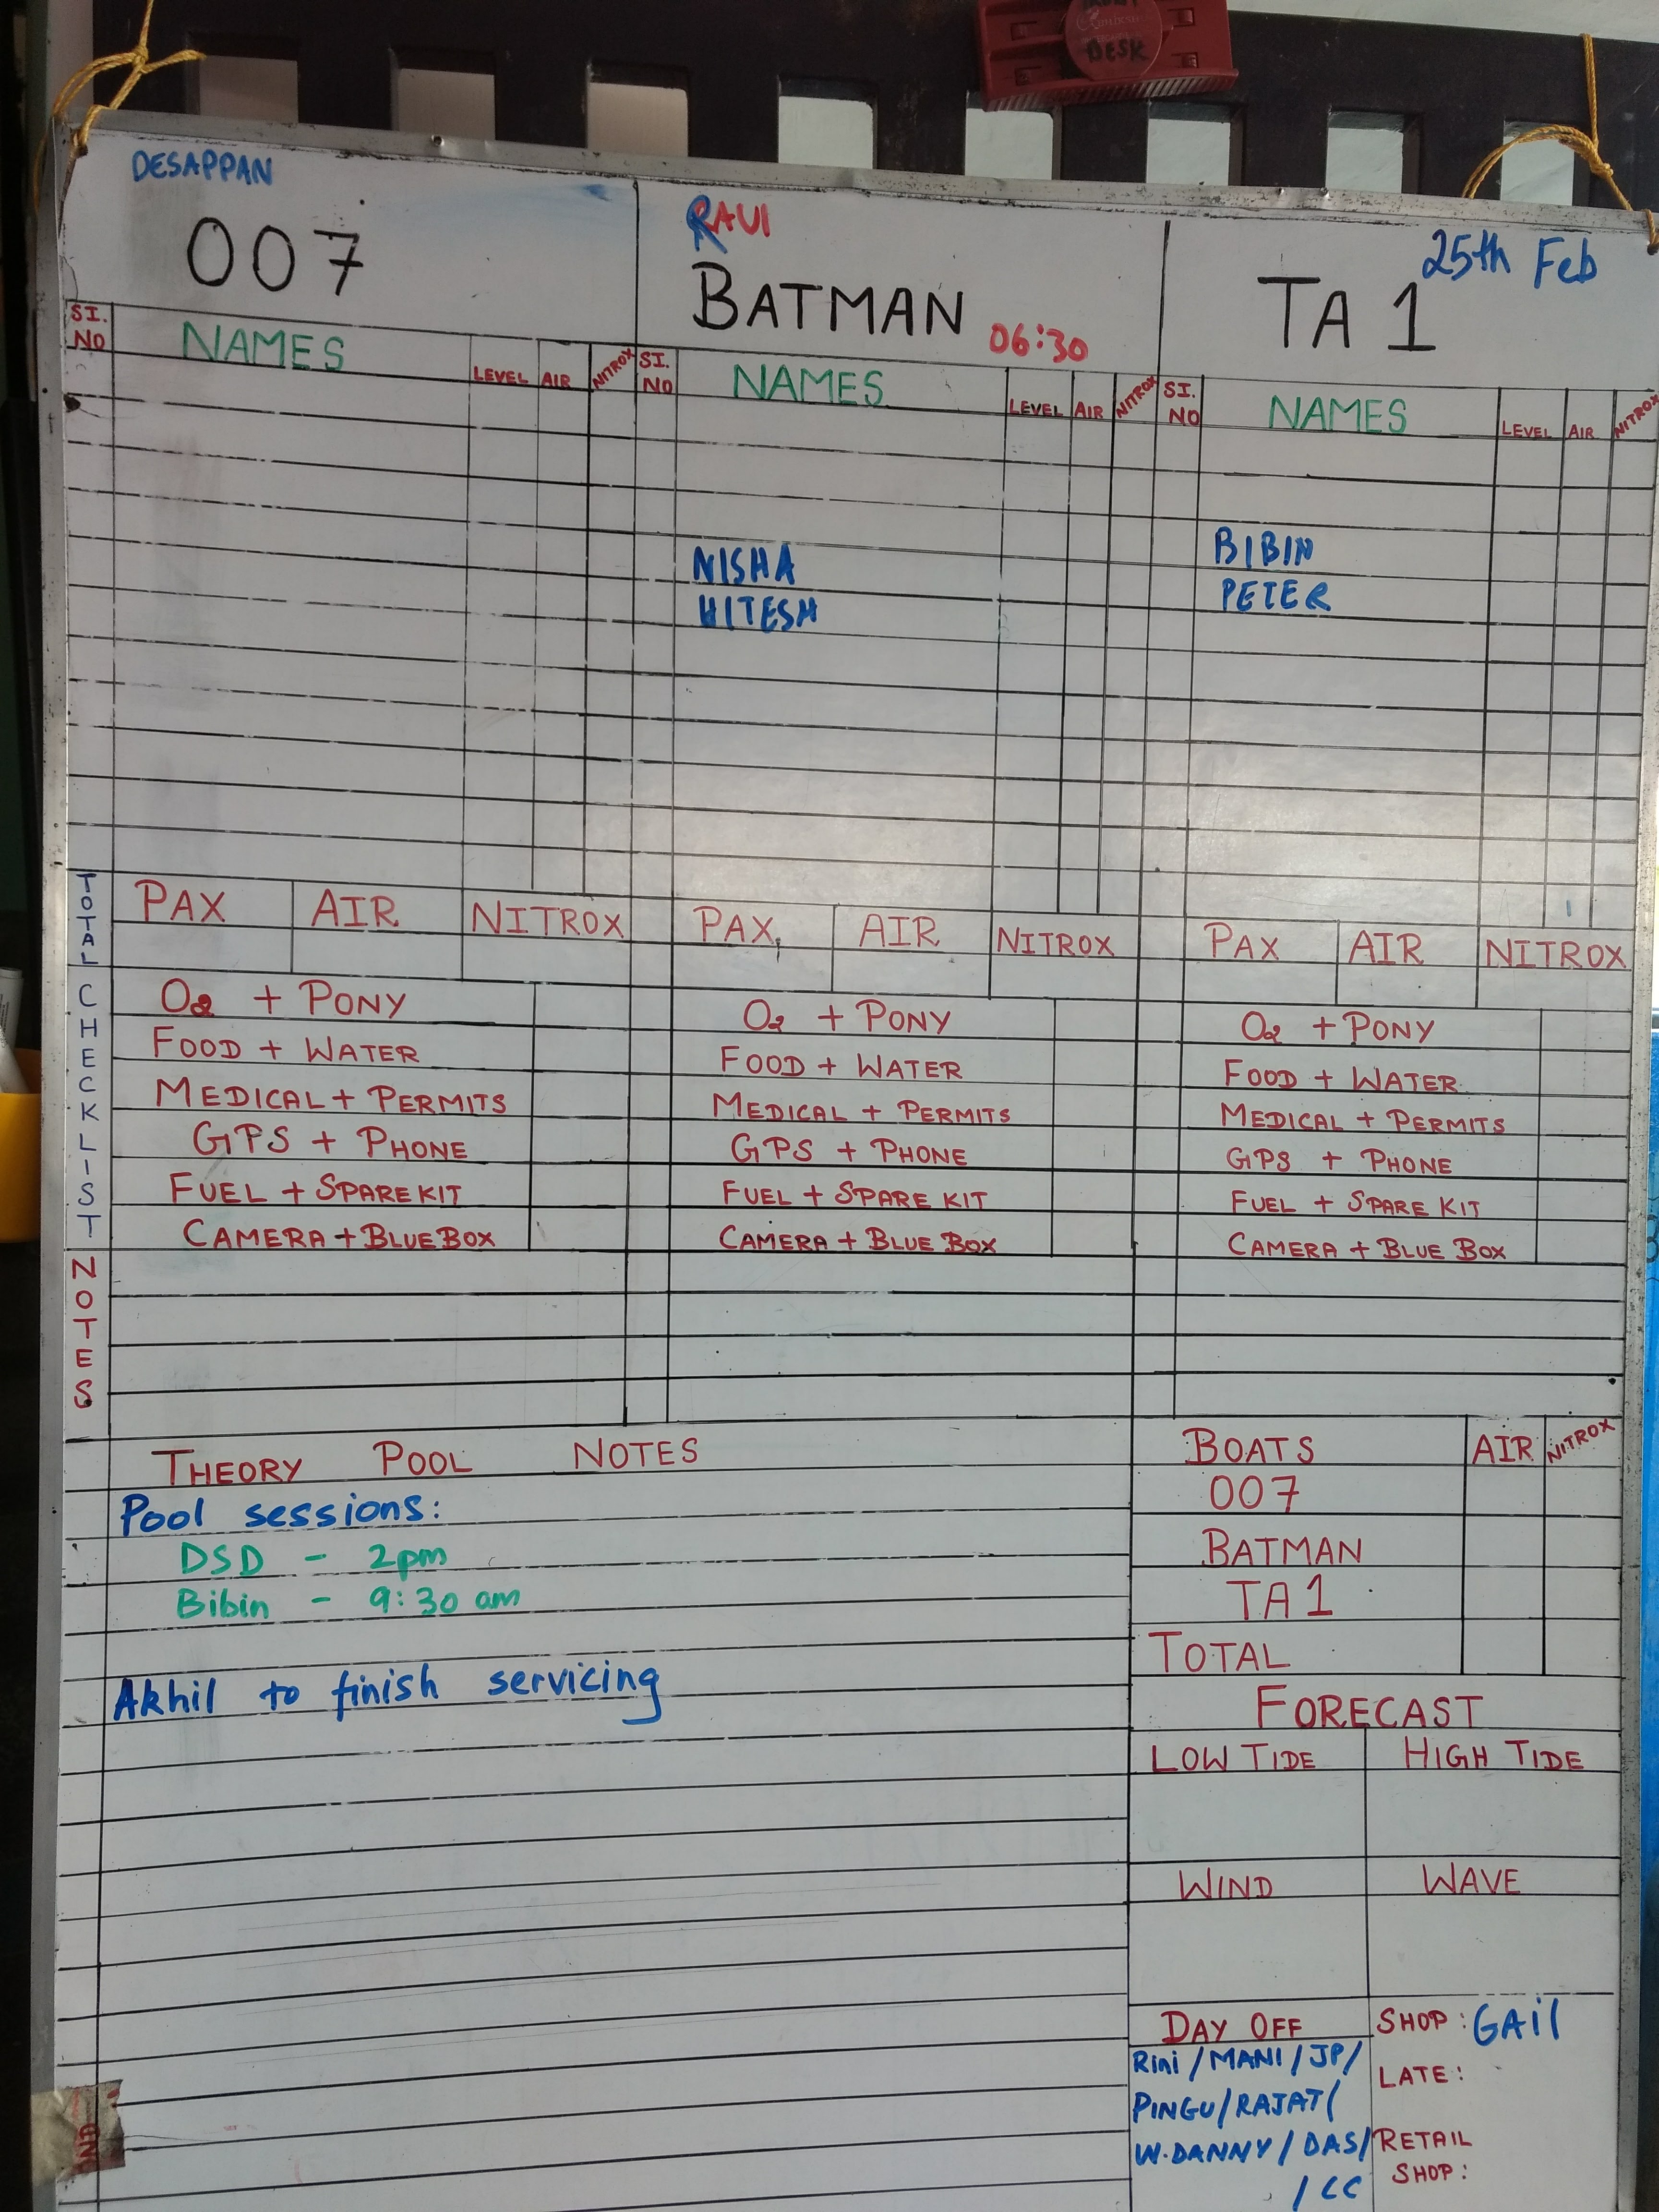 DESK
DESAPPAN
007
RAVI
BATMAN 06:30
25th Feb
TA 1
SI. NO NAMES LEVEL AIR NITROX SI. NO NAMES LEVEL AIR NITROX SI. NO NAMES LEVEL AIR NITROX
NISHA BIBIN
HITESH PETER
TOTAL
PAX AIR NITROX PAX AIR NITROX PAX AIR NITROX
CHECKLIST
O2 + PONY O2 + PONY O2 + PONY
FOOD + WATER FOOD + WATER FOOD + WATER
MEDICAL + PERMITS MEDICAL + PERMITS MEDICAL + PERMITS
GPS + PHONE GPS + PHONE GPS + PHONE
FUEL + SPARE KIT FUEL + SPARE KIT FUEL + SPARE KIT
CAMERA + BLUE BOX CAMERA + BLUE BOX CAMERA + BLUE BOX
NOTES
THEORY POOL NOTES
Pool sessions:
DSD - 2pm
Bibin - 9:30 am
Akhil to finish servicing
BOATS AIR NITROX
007
BATMAN
TA 1
TOTAL
FORECAST
LOW TIDE HIGH TIDE
WIND WAVE
DAY OFF
Rini / MANI / JP /
PINGU / RAJAT /
W.DANNY / DAS /
/ CC
SHOP : GAil
LATE :
RETAIL
SHOP :